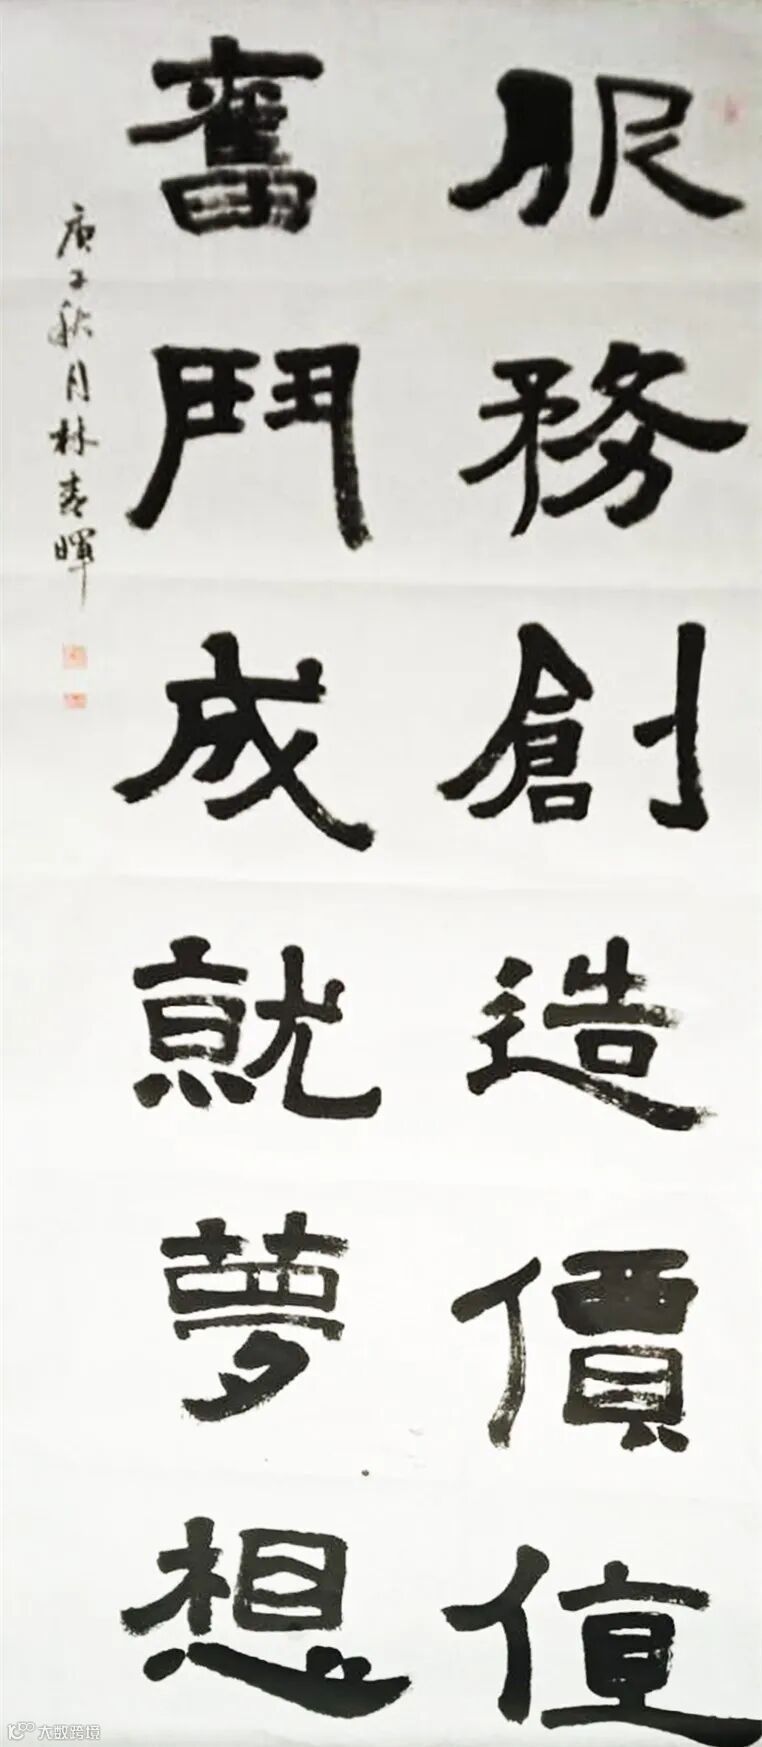 服務創造價值
奮鬥成就夢想
庚子秋月林春暉
大数跨境